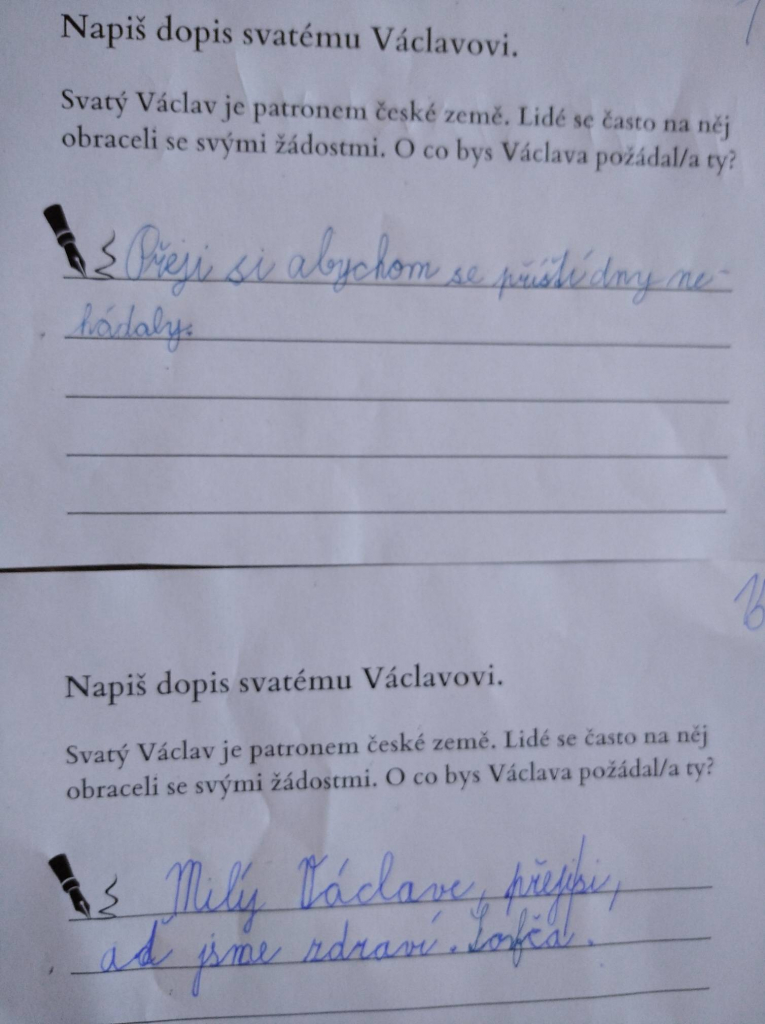 Napiš dopis svatému Václavovi.
Svatý Václav je patronem české země. Lidé se často na něj
obraceli se svými žádostmi. O co bys Václava požádal/a ty?
Přeji si abychom se příští dny ne-
hádaly.
Napiš dopis svatému Václavovi.
Svatý Václav je patronem české země. Lidé se často na něj
obraceli se svými žádostmi. O co bys Václava požádal/a ty?
Milý Václave, přeji si,
ať jsme zdraví.